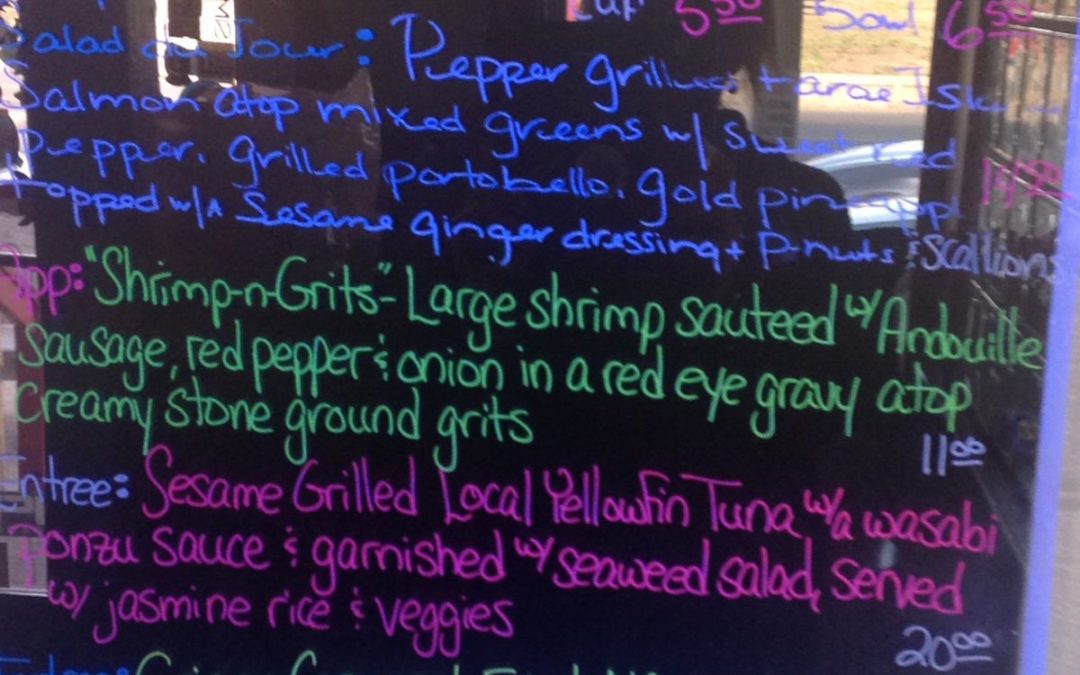 Cup 5.50 Bowl 6.50
Salad du Jour: Pepper grilled Faroe Island
Salmon atop mixed greens w/ sweet red
Pepper, grilled portobello, gold pineappl
topped w/a Sesame ginger dressing + P-nuts & scallions
App: "Shrimp-n-Grits" - Large shrimp sauteed w/ Andouille
sausage, red pepper & onion in a red eye gravy atop
creamy stone ground grits
11.00
Entree: Sesame Grilled Local Yellowfin Tuna w/a wasabi
Ponzu sauce & garnished w/ seaweed salad, served
w/ jasmine rice & veggies
20.00